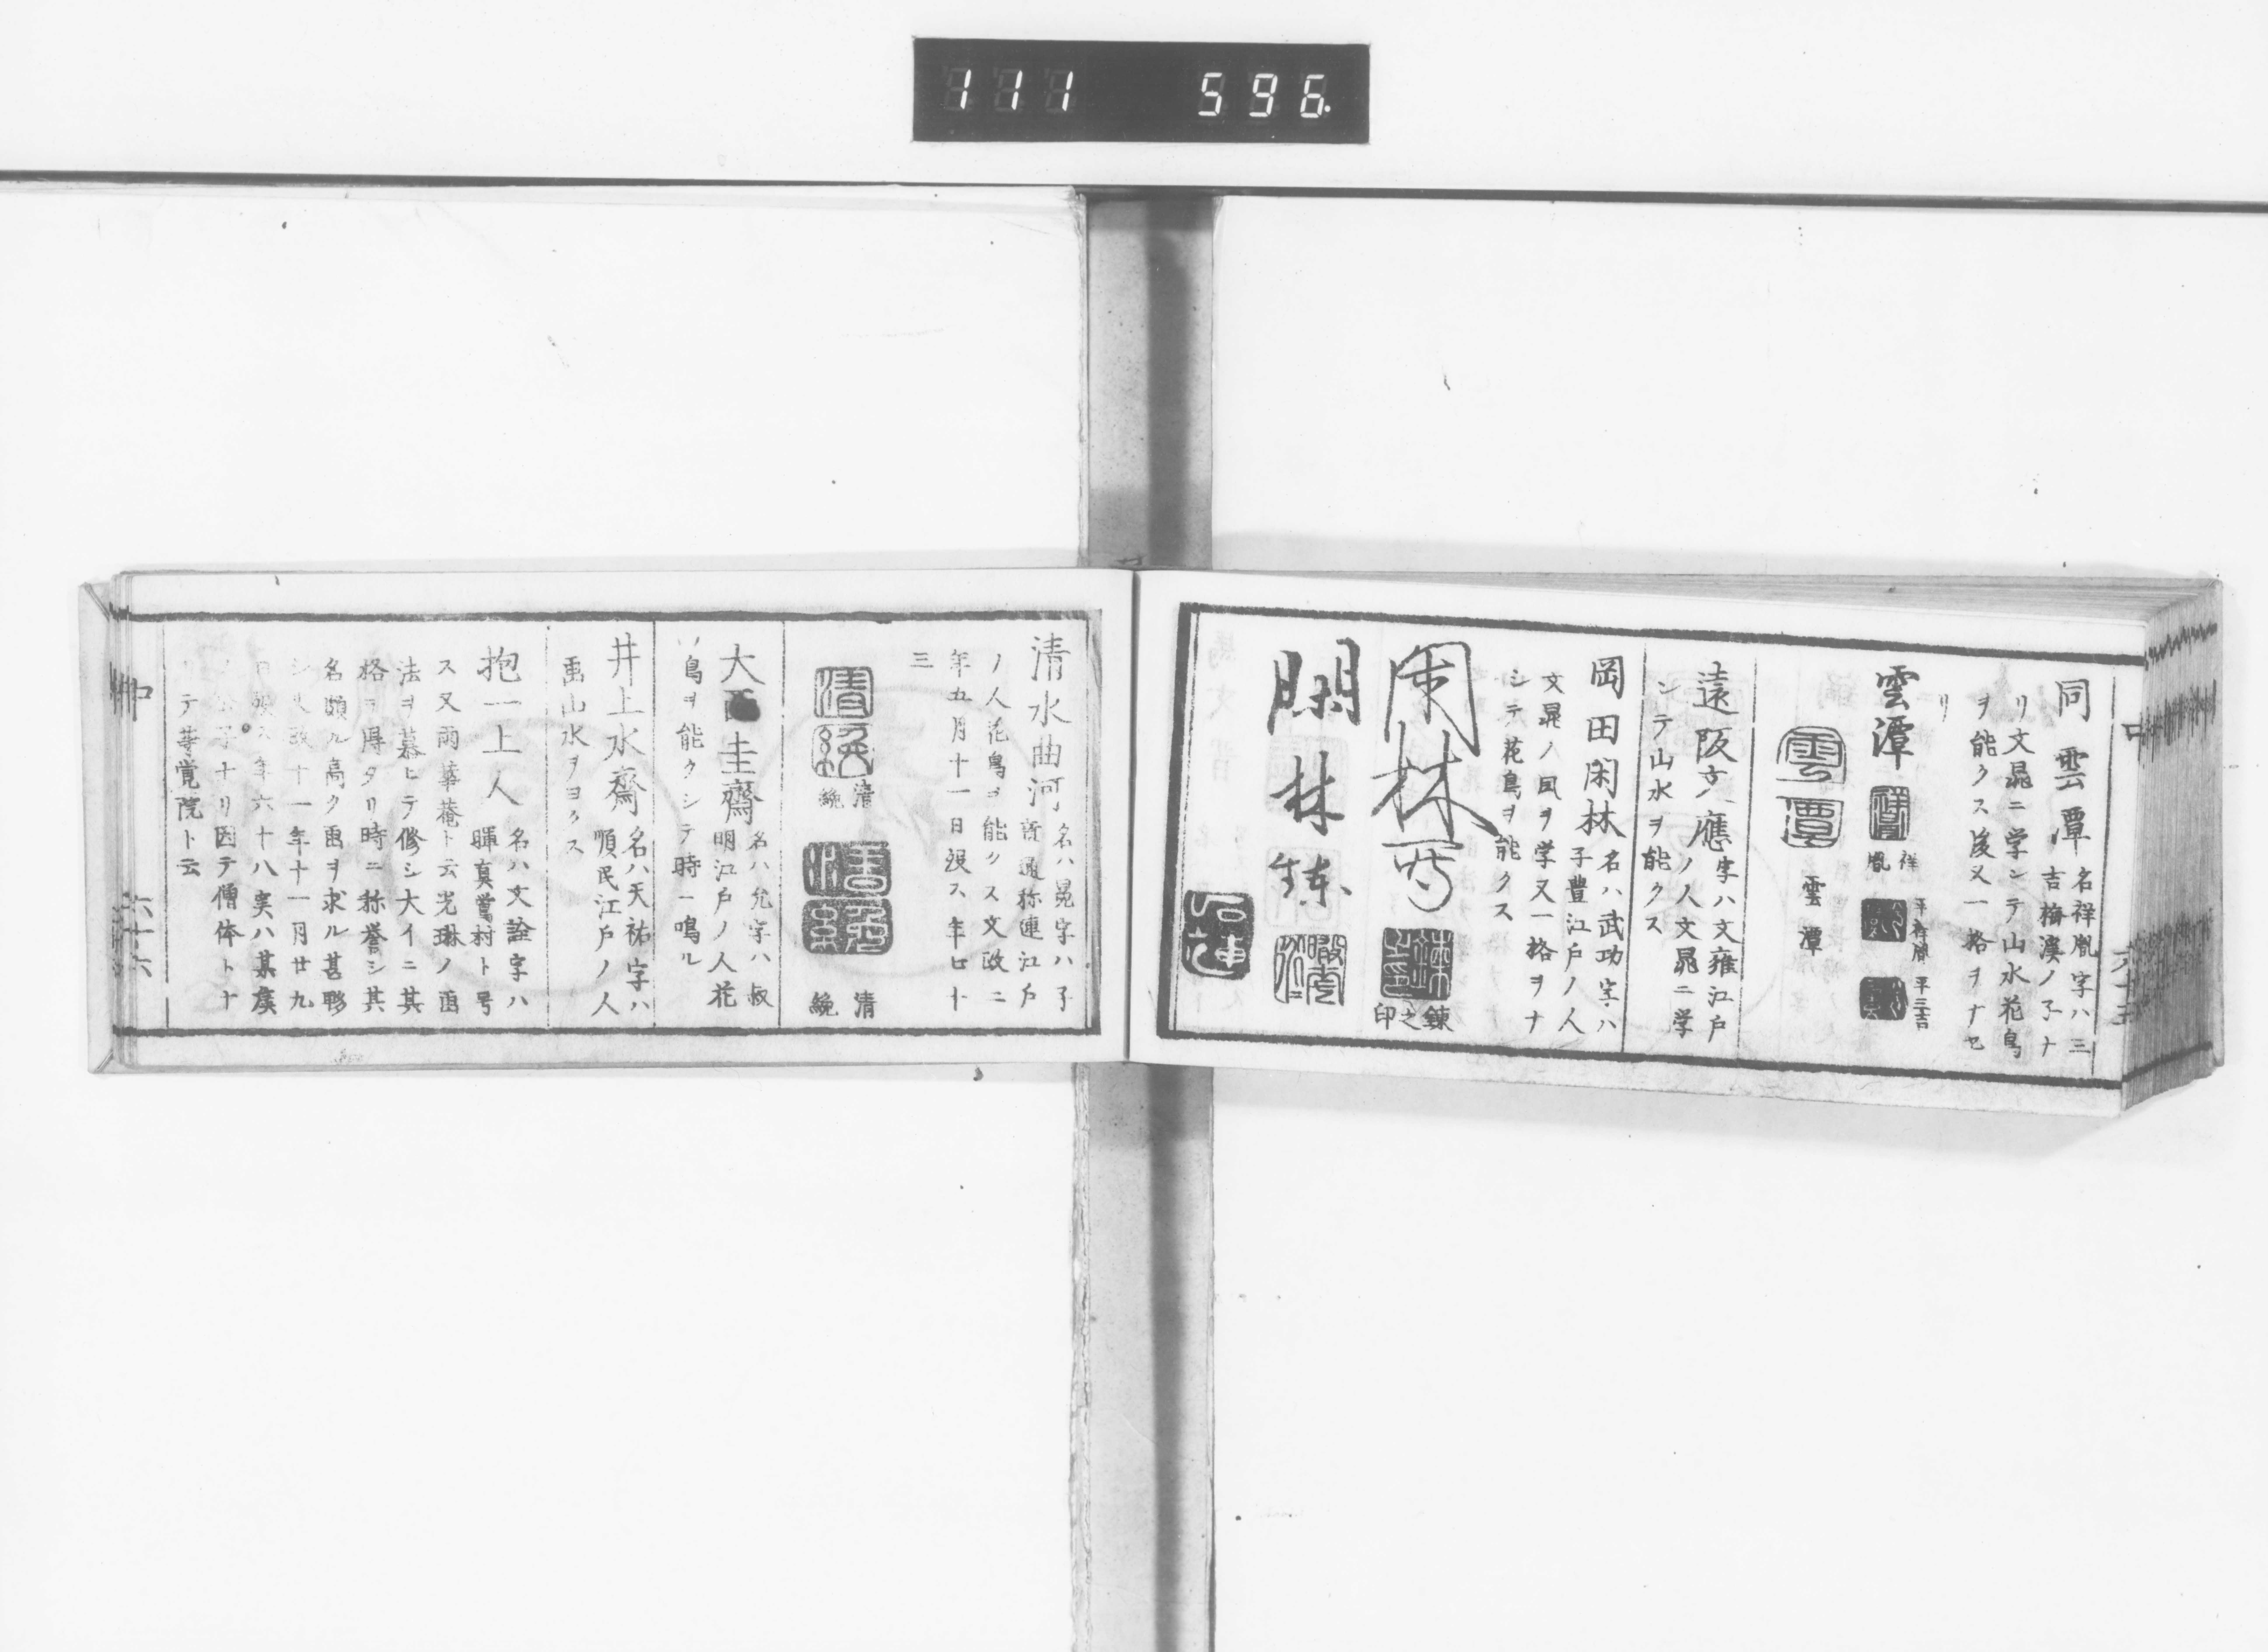 111 596.
同雲潭 名祥胤字ハ三
吉梅溪ノ子ナ
リ文晁ニ学シテ山水花鳥
ヲ能クス後又一格ヲナセ
リ
雲潭
祥胤
平祥胤
平三吉
雲潭
雲潭
遠阪文應 字ハ文雍江戸
ノ人文晁ニ学
シテ山水ヲ能クス
岡田閑林 名ハ武功字ハ
子豊江戸ノ人
文晁ノ風ヲ学又一格ヲナ
シテ花鳥ヲ能クス
閑林写
錬之印
閑林錬
清水曲河 名ハ晃字ハ子
通称連江戸
ノ人花鳥ヲ能クス文政二
年五月十一日没ス年七十
三
清
清
大西圭齋 名ハ允字ハ叔
明江戸ノ人花
鳥ヲ能クシテ時ニ鳴ル
井上水齋 名ハ天祐字ハ
順民江戸ノ人
画山水ヲヨクス
抱一上人 名ハ文詮字ハ
暉真鶯村ト号
ス又雨華菴ト云光琳ノ画
法ヲ慕ヒテ修シ大イニ其
格ヲ得タリ時ニ称誉シ其
名頗ル高ク画ヲ求ル甚夥
シ文政十一年十一月廿九
日没ス年六十八実ハ某矦
ノ公子ナリ因テ僧体トナ
リテ等覚院ト云
中
六十六